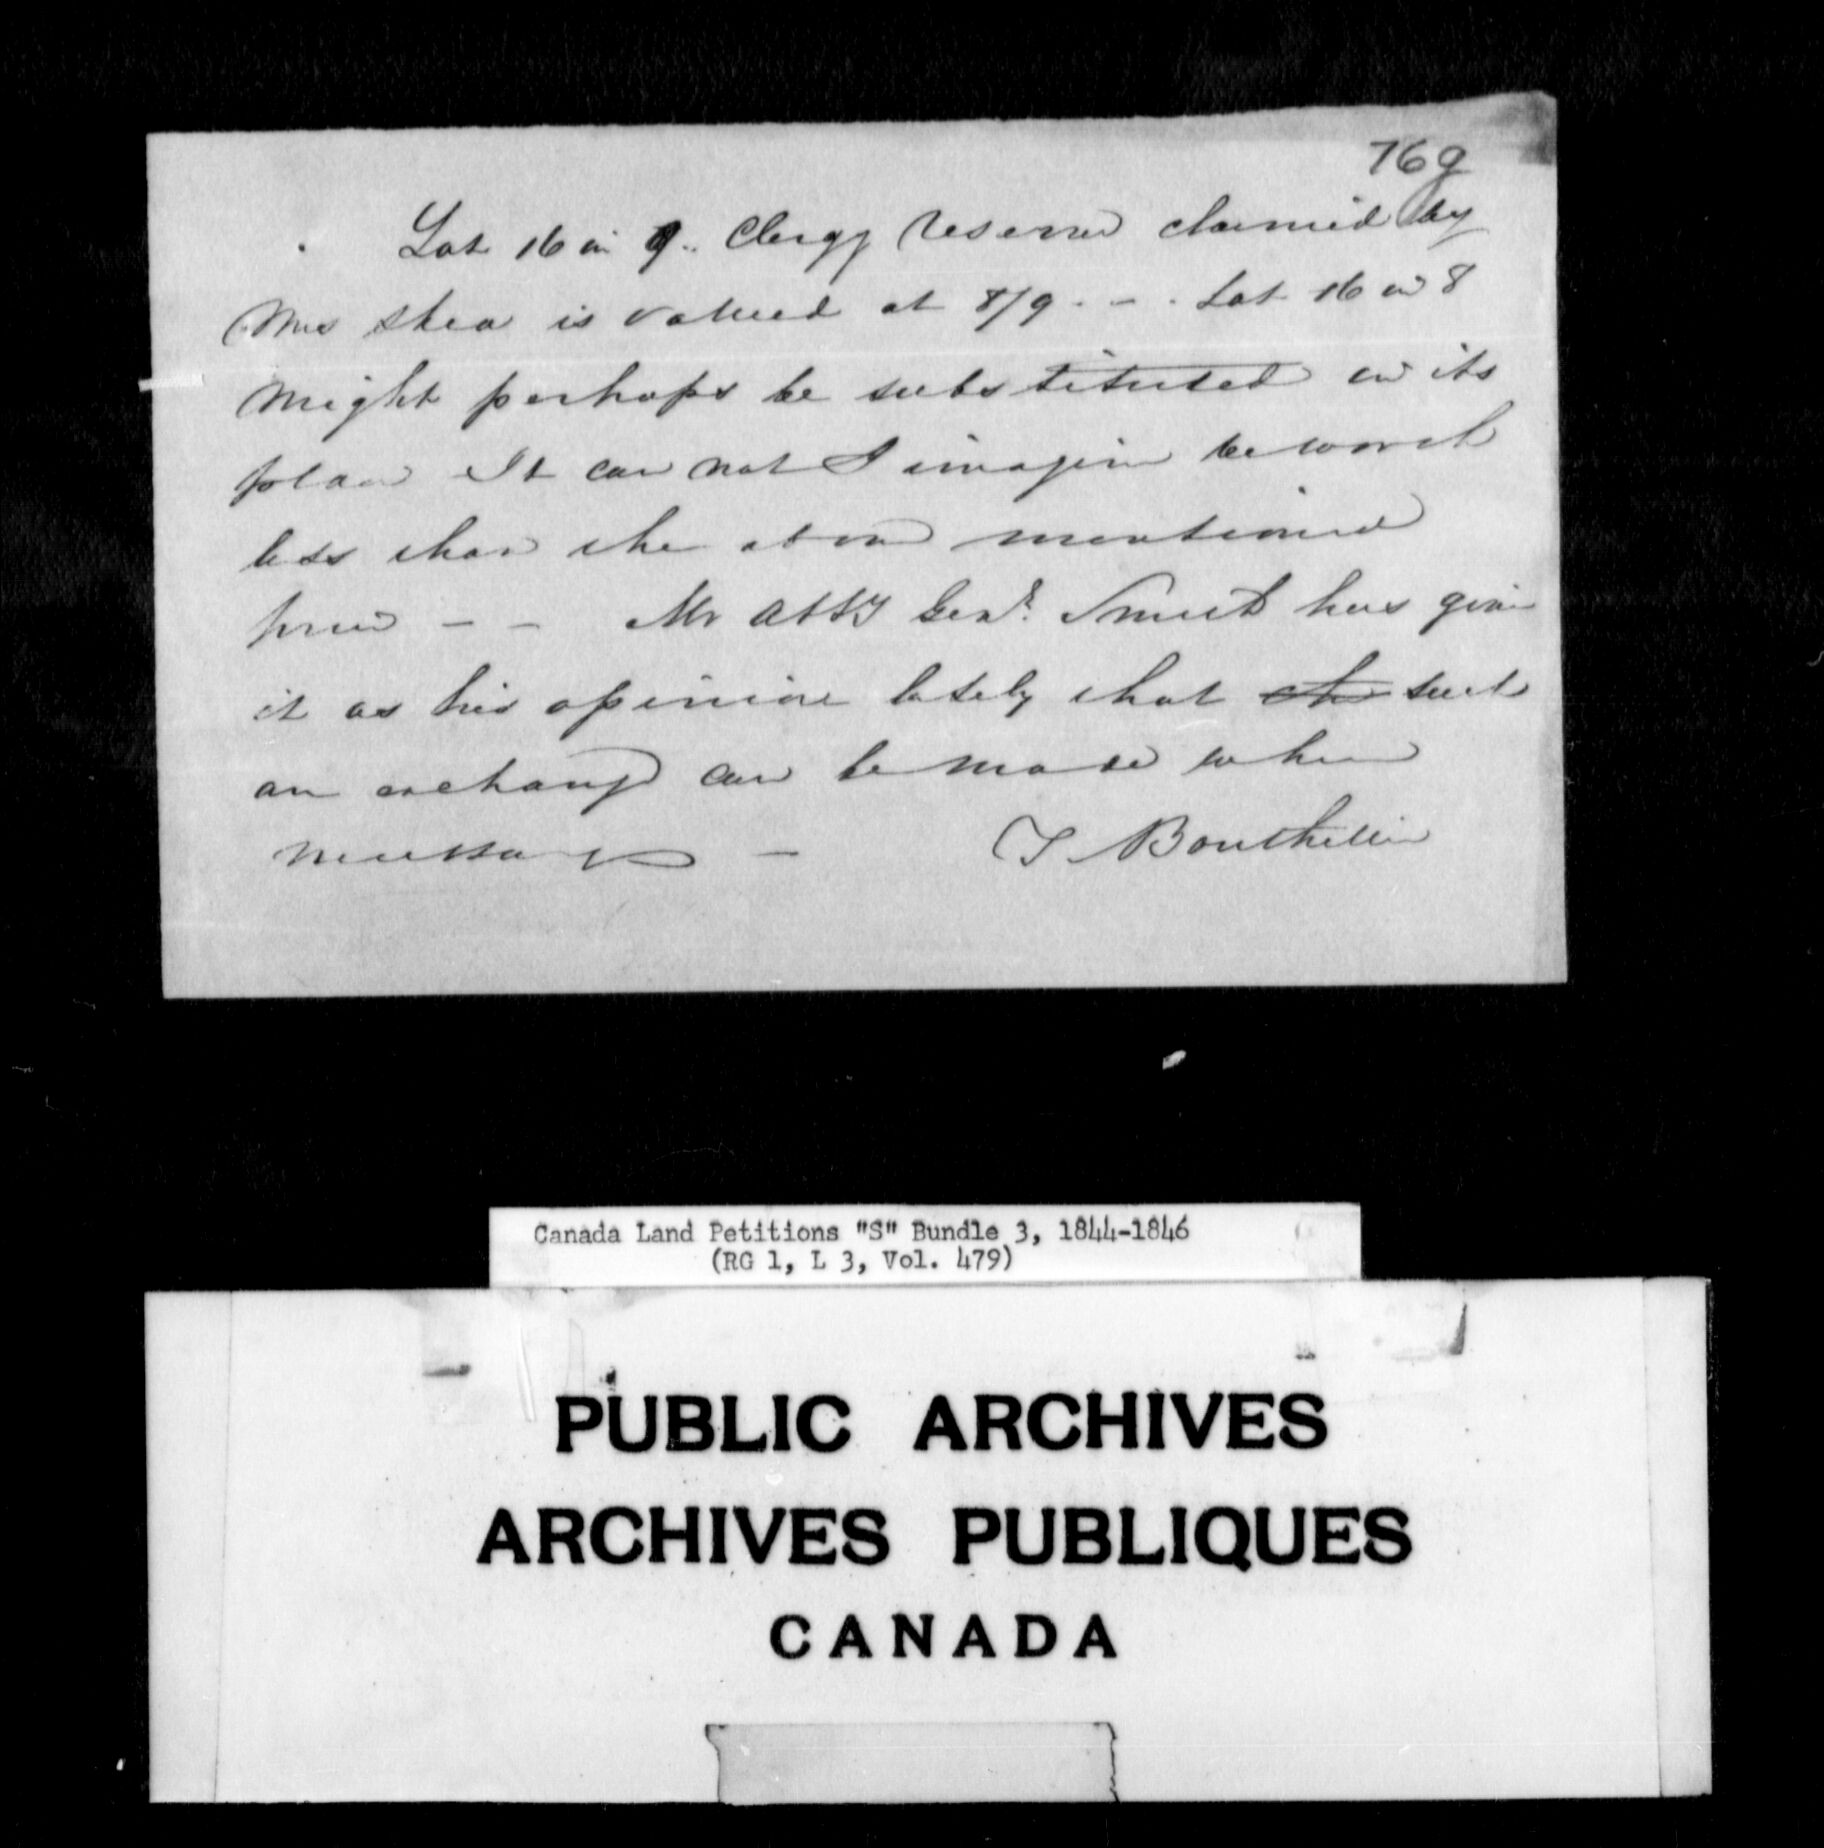 76g
Lot 16 in 9. Clergy reserve claimed by
Mrs Shea is valued at 8/9 - - . Lot 16 in 8
might perhaps be substituted in its
place It can not I imagine be worth
less than the above mentioned
price - - Mr Atty Genl. Smith has given
it as his opinion lately that such
an exchange can be made when
necessary - T Bouthillier
Canada Land Petitions "S" Bundle 3, 1844-1846
(RG 1, L 3, Vol. 479)
PUBLIC ARCHIVES
ARCHIVES PUBLIQUES
CANADA